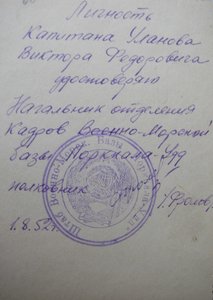 Личность
Капитана Уланова
Виктора Федоровича
удостоверяю
Начальник отделения
Кадров Военно-Морской
базы Порккала-Удд
полковник
Фролов
1.8.52г.
Штаб Военно-Морск. Базы